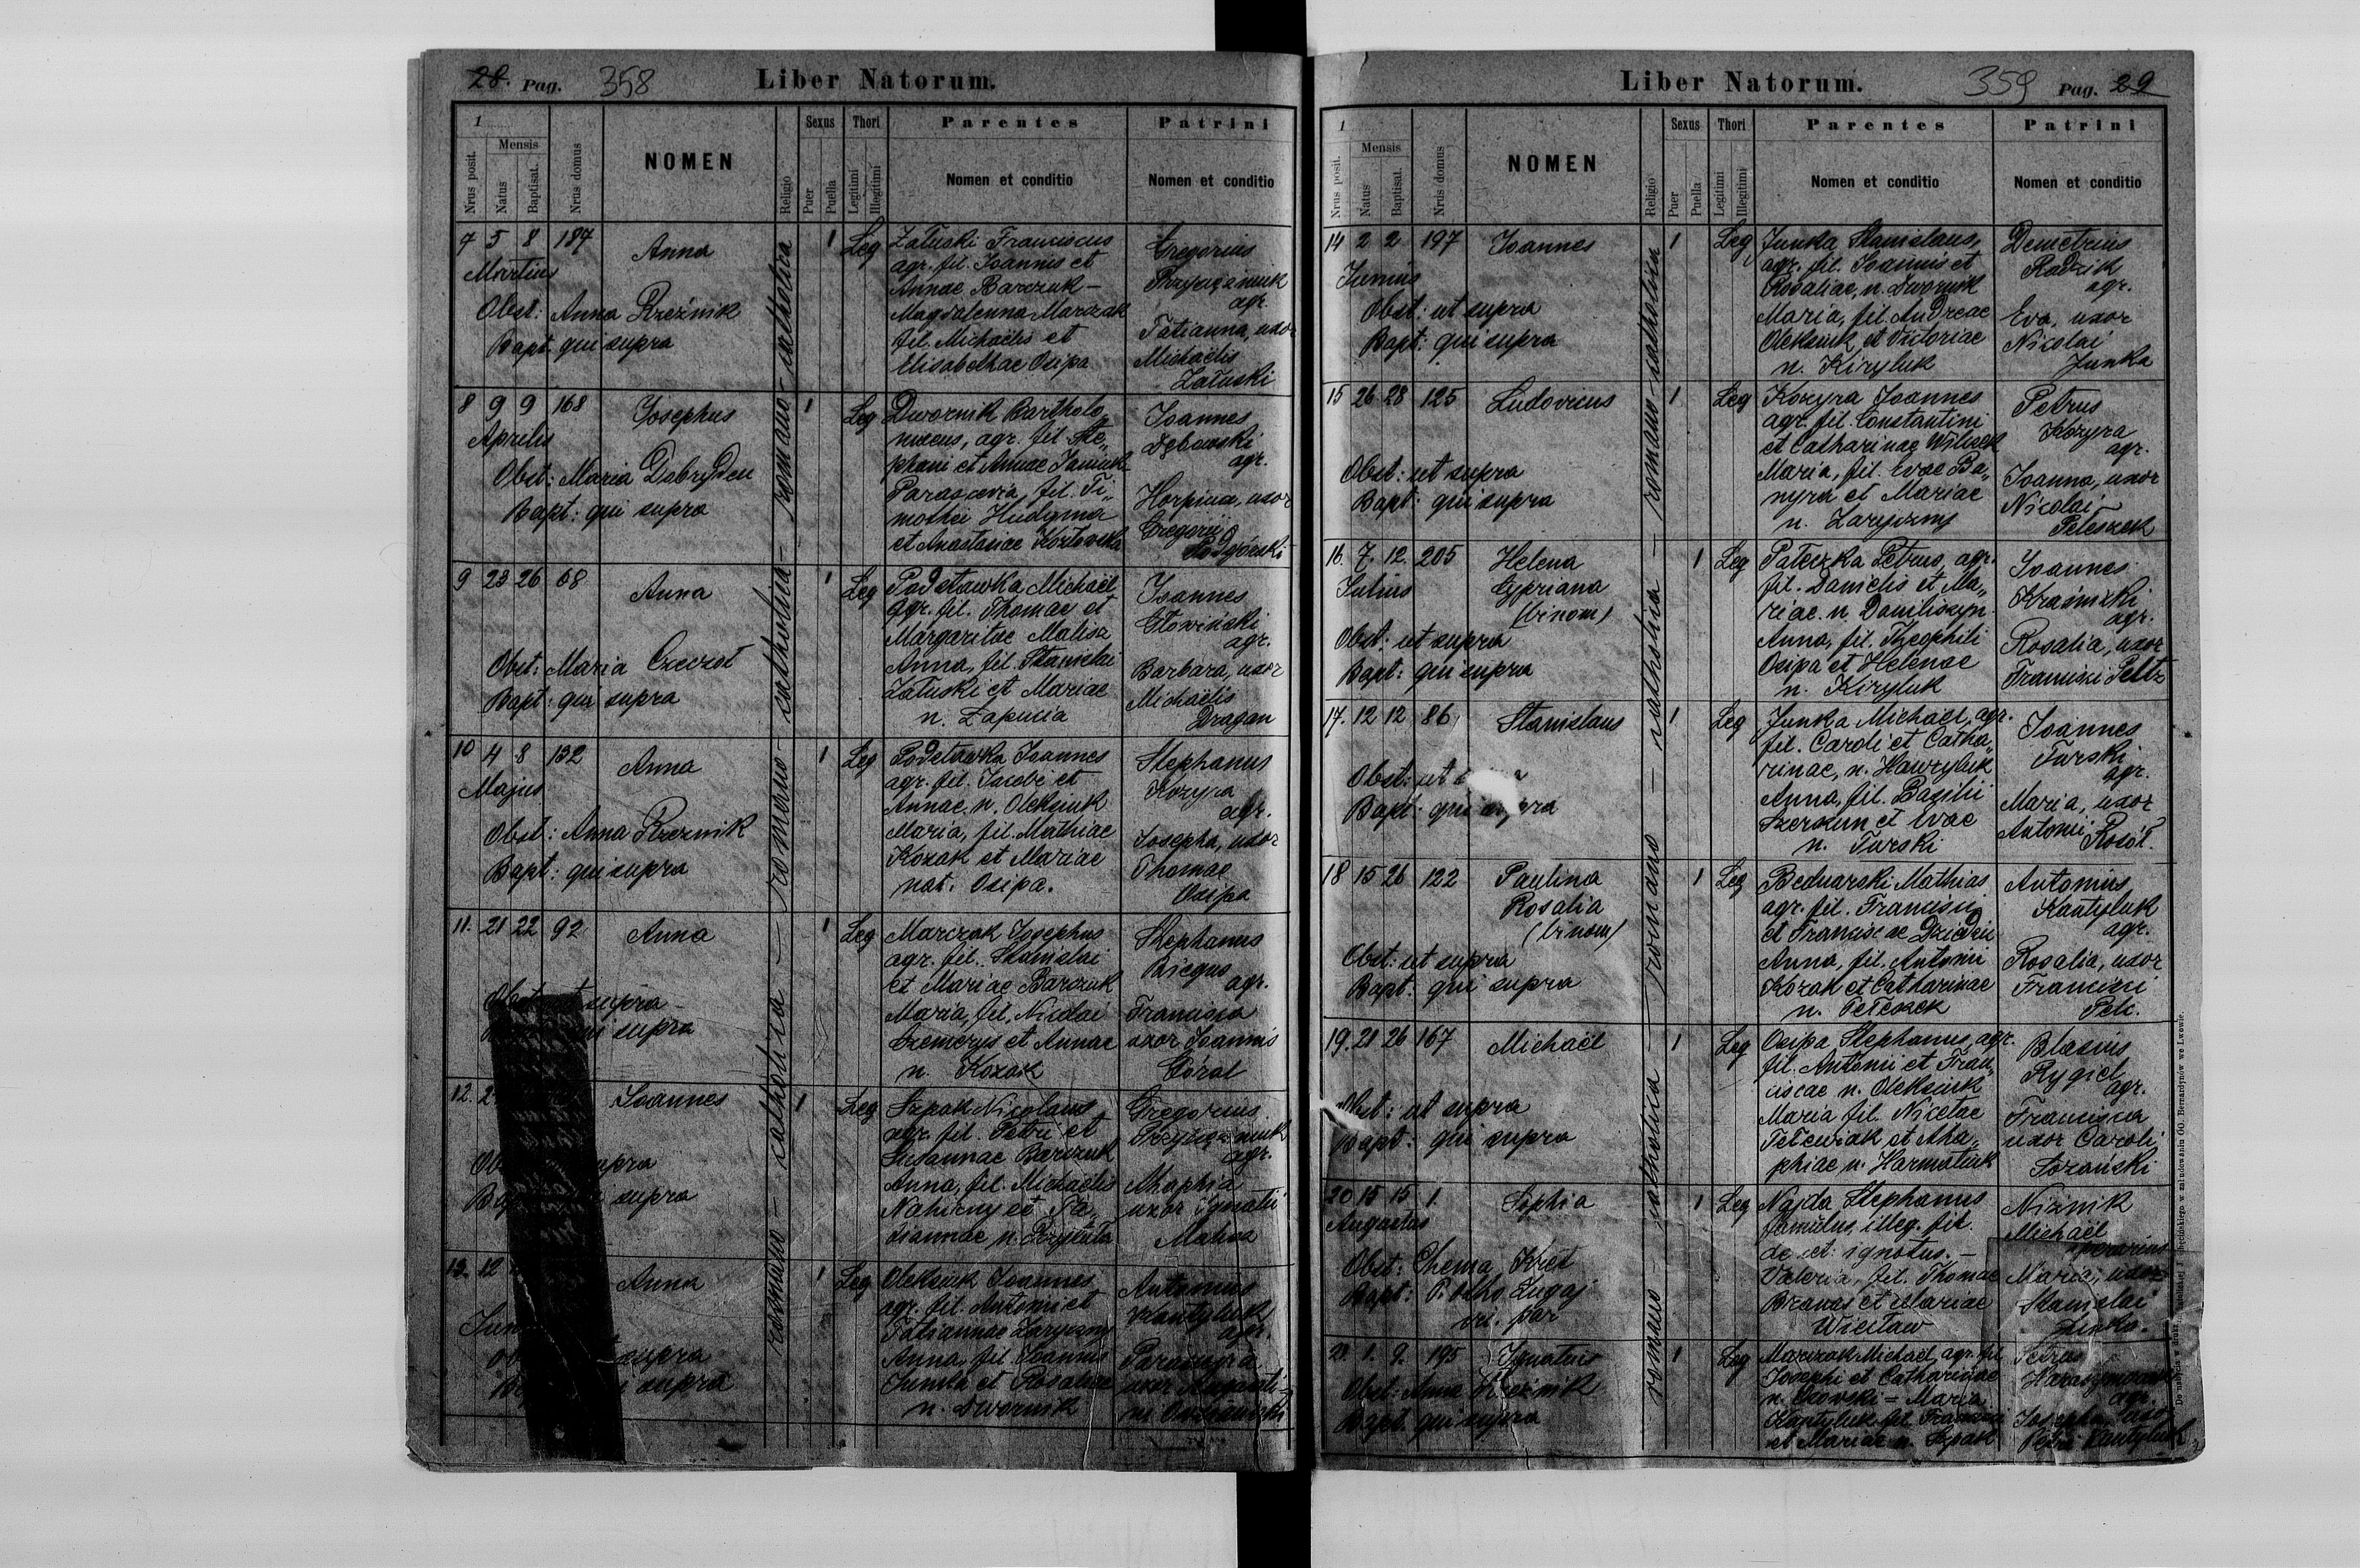 28. Pag. 358 Liber Natorum.
1
Mensis
Nrus posit.
Natus
Baptisat.
Nrus domus
NOMEN
Religio
Sexus
Puer
Puella
Thori
Legitimi
Illegitimi
Parentes
Nomen et conditio
Patrini
Nomen et conditio
romano - catholica - romano - catholica - romano - catholica
7 5 8 187 Anna 1 Leg
Martius
Obst: Anna Rzeźnik
Bapt. qui supra
Załuski Franciscus
agr. fil. Joannis et
Annae Barczuk -
Magdalenna Marczak
fil. Michaëlis et
Elisabethae Osipa
Gregorius
agr.
Tatianna, uxor
Michaëlis
Załuski
8 9 9 168 Josephus 1 Leg
Aprilis
Obst: Maria Dobryden
Bapt: qui supra
Dwornik Bartholo„
maeus, agr. fil. Ste„
phani et Annae Janiuk
Parascevia, fil. Ti„
mothei Hudyma
et Anastasiae Kozłowska
Joannes
Dębowski
agr.
Horpina, uxor
Gregorii
Podgórski
9 23 26 68 Anna 1 Leg
Obst: Maria Czeczot
Bapt: qui supra
Podstawka Michaël
agr. fil. Thomae et
Margaritae Malisz
Anna, fil. Stanislai
Załuski et Mariae
n. Łapucia
Joannes
Głowiński
agr.
Barbara, uxor
Michaëlis
Dragan
10 4 8 132 Anna 1 Leg
Majus
Obst: Anna Rzeźnik
Bapt: qui supra
Podstawka Joannes
agr. fil. Jacobi et
Annae, n. Oleksiuk
Maria, fil. Mathiae
Kozak et Mariae
nat. Osipa.
Stephanus
Kozyra
agr.
Josepha, uxor
Thomae
Osipa
11. 21 22 92 Anna 1 Leg
supra
supra
Marczak Josephus
agr. fil. Stanislai
et Mariae Barczuk
Maria, fil. Nicolai
Szemerys et Annae
n. Kozak
Stephanus
Biegus
agr.
Francisca
uxor Joannis
Góral
12. Joannes 1 Leg
supra
supra
Szpak Nicolaus
agr. fil. Petri et
Susannae Barczuk
Anna, fil. Michaëlis
Nahirny et Ta„
tiannae n. Przykuta
Gregorius
agr.
Ahaphia
uxor Ignatii
Malisz
13. 12 Anna 1 Leg
supra
supra
Oleksiuk Joannes
agr. fil. Antoni et
Tatiannae Zaryczny
Anna, fil. Joannis
Junka et Rosaliae
n. Dwornik
Antonius
Kantyluk
agr.
uxor
Liber Natorum. 359 Pag. 29
1
Mensis
Nrus posit.
Natus
Baptisat.
Nrus domus
NOMEN
Religio
Sexus
Puer
Puella
Thori
Legitimi
Illegitimi
Parentes
Nomen et conditio
Patrini
Nomen et conditio
romano - catholica - romano - catholica - romano - catholica
14 2 2 197 Joannes 1 Leg
Junius
Obst: ut supra
Bapt: qui supra
Junka Stanislaus,
agr. fil. Joannis et
Rosaliae, n. Dwornik
Maria, fil. Andreae
Oleksiuk et Victoriae
n. Kiryluk
Demetrius
Radzik
agr.
Eva, uxor
Nicolai
Junka
15 26 28 125 Ludovicus 1 Leg
Obst: ut supra
Bapt: qui supra
Kozyra Joannes
agr. fil. Constantini
et Catharinae Wilczek
Maria, fil. Evae Ba„
nyra et Mariae
n. Zaryczny
Petrus
Kozyra
agr.
Joanna, uxor
Nicolai
Pełeszek
16. 7. 12. 205 Helena 1 Leg
Julius Cypriana
(binom)
Obst: ut supra
Bapt: qui supra
Pałeczka Petrus, agr.
fil. Danielis et Ma„
riae n. Daniliszyn
Anna, fil. Theophili
Osipa et Helenae
n. Kiryluk
Joannes
Kraśnicki
agr.
Rosalia, uxor
Francisci Peltz
17. 12 12 86 Stanislaus 1 Leg
Obst: ut
Bapt: qui supra
Junka Michaël, agr.
fil. Caroli et Catha„
rinae, n. Hawryluk
Anna, fil. Basilii
Szerszun et Evae
n. Turski
Joannes
Turski
agr.
Maria, uxor
Antonii Rosół.
18 15 26 122 Paulina 1 Leg
Rosalia
(binom)
Obst: ut supra
Bapt: qui supra
Bednarski Mathias
agr. fil. Francisci
et Franciscae Dziedzic
Anna, fil. Antonii
Kozak et Catharinae
n. Pełeszek
Antonius
Kantyluk
agr.
Rosalia, uxor
Francisci
Pelc.
19. 21 26 167 Michaël 1 Leg
Obst: ut supra
Bapt: qui supra
Osipa Stephanus, agr.
fil. Antonii et Fran„
ciscae n. Oleksiuk
Maria fil. Nicetae
Pełewiak et Aha„
phiae n. Harmatiuk
Blasius
Rygiel
agr.
Francisca
uxor Caroli
Łozański
20 15 15 1. Sophia 1 Leg
Augustus
Obst: Chema Kret
Bapt: P. Otho Lugaj
vic. par
Najda Stephanus
famulus, illeg. fil.
de cet. ignotus. -
Valeria, fil. Thomae
et Mariae
Wiciław
Niźnik
Michaël
operarius
Maria, uxor
Stanislai
Junka.
21. 1. 9. 195 Ignatius 1 Leg
Obst: Anna Rzeźnik
Bapt. qui supra
Marczak Michaël, agr. fil
Josephi et Catharinae
Maria
Kantyluk fil. Francisci
et Mariae n. Szpak
Petrus
agr.
Josepha, uxor
Petri Kantyluk